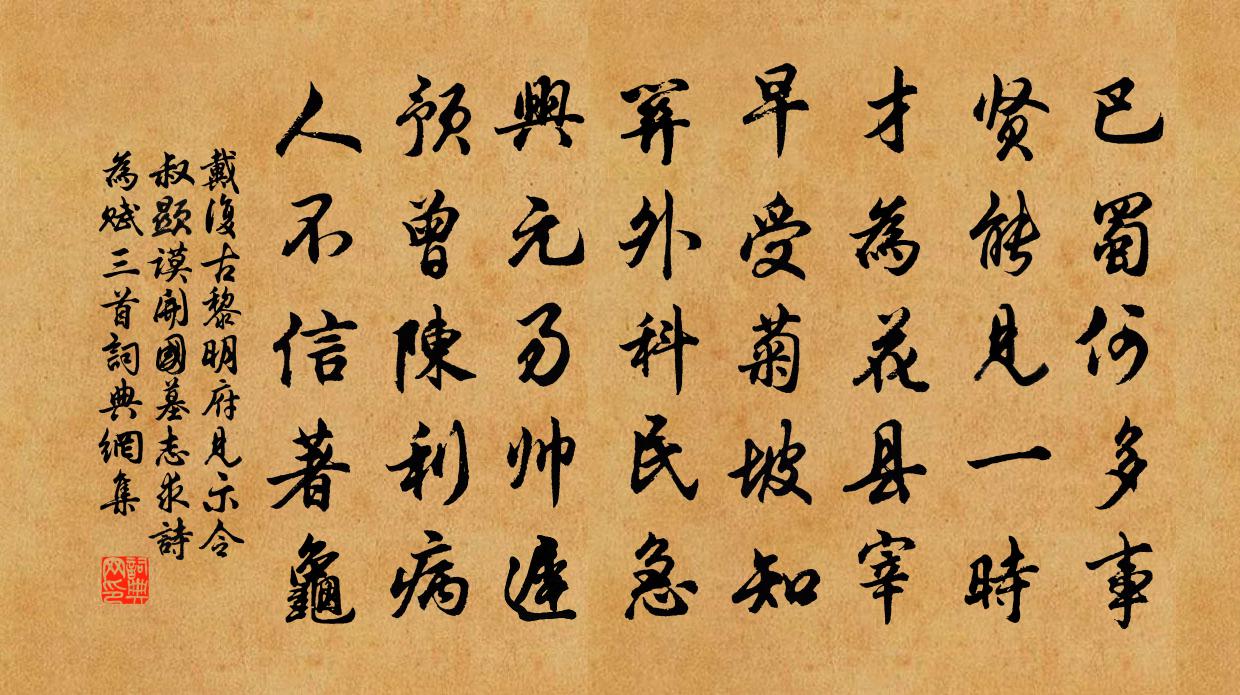 巴蜀何多事
贤能見一時
才為花县宰
早受菊坡知
筭外科民急
興元易帅遲
预曾陳利病
人不信著龜
戴復古黎明府見示令
叔顯謨開國墓志求詩
為赋三首詞典網集
詞典网印